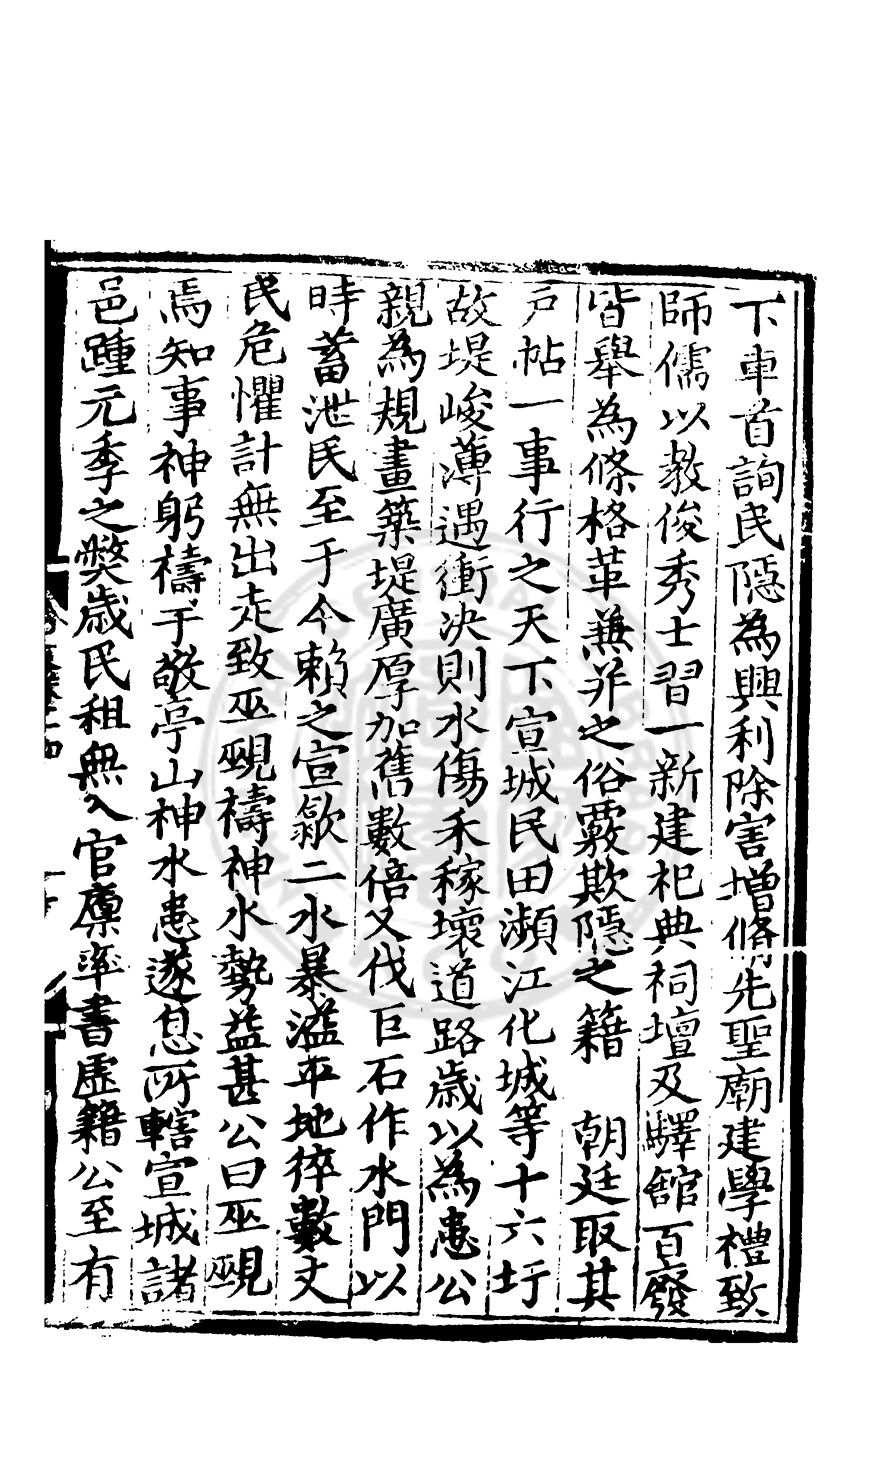 下車首詢民隱為興利除害增脩先聖廟建學禮致
師儒以教俊秀士習一新建祀典祠壇及驛館百廢
皆舉為條格革兼并之俗覈欺隱之籍　朝廷取其
戸帖一事行之天下宣城民田瀕江化城等十六圩
故堤峻薄遇衝决則水傷禾稼壞道路歲以為患公
親為規畫築堤廣厚加舊數倍又伐巨石作水門以
時蓄泄民至于今賴之宣歙二水暴溢平地猝數丈
民危懼計無出走致巫覡禱神水勢益甚公曰巫覡
焉知事神躬禱于敬亭山神水患遂息所轄宣城諸
邑踵元季之弊歲民租無入官廩率書虛籍公至有